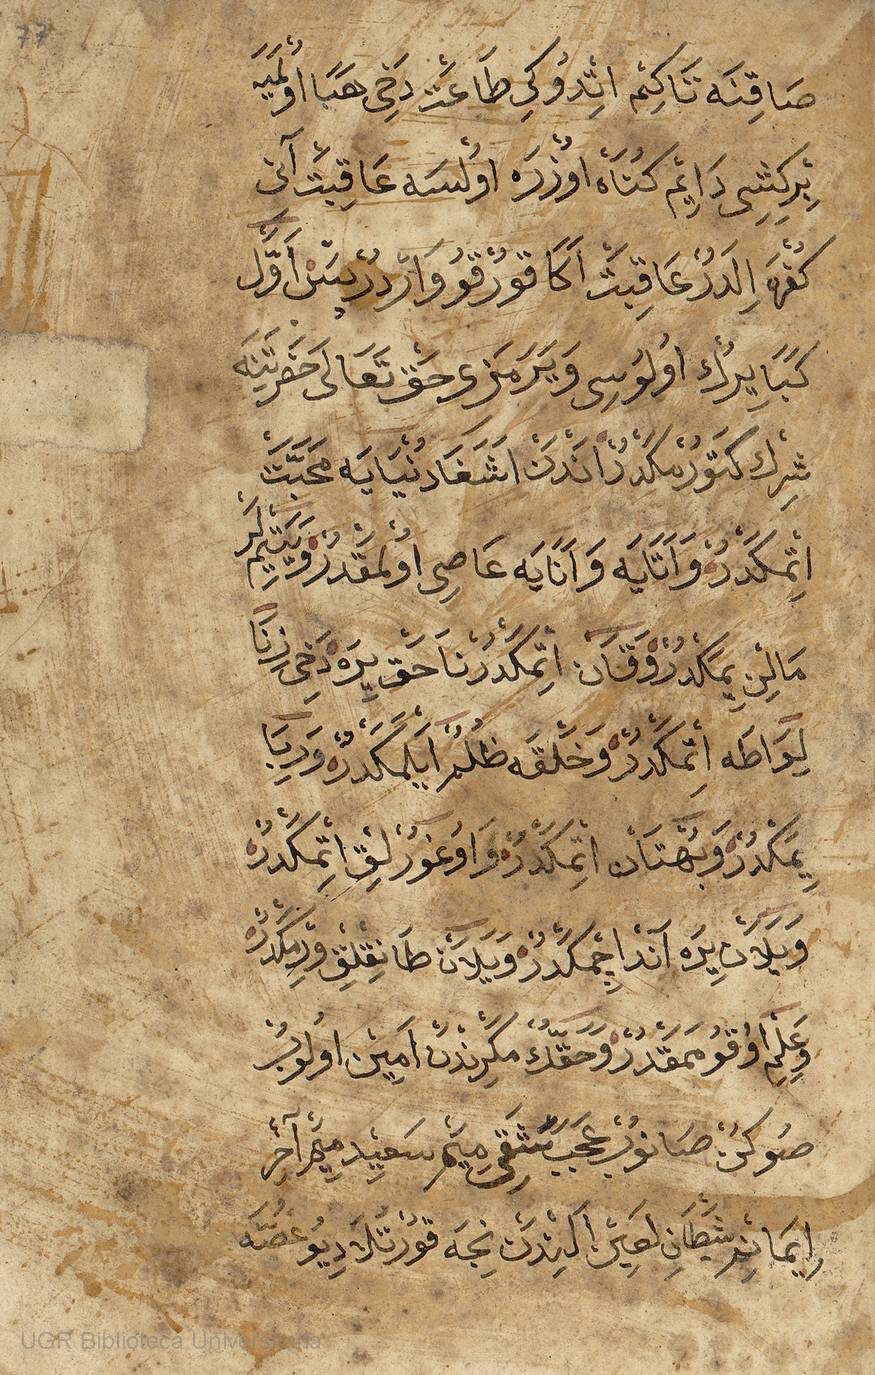 77
صَاقِنَه تَاكِمْ اتِدُوكِى طَاعَتْ دَخِى هَبَا اوُلْمَيَه
بِرِكِشِى دَايِمْ كُنَاه اوُزرَه اوُلسَه عَاقِبَتْ آنى
كُفْرَه اِلَدَرْ عَاقِبَتْ اَكَا قوُرْقوُ وَارْدُرْ پَسْ اَوَّل
كَبَايِرُكْ اوُلوُسِى وَيَرَمَزى حَقْ تَعَالَى حَضْرَتِنَه
شِرْك كَتوُرْمَكْدُرْ اَنْدَنْ اَشَغَا دُنْيَايَه مَحَبَّتْ
اِتْمَكْدُرْ وَ اَتَايَه وَ اَنَايَه عَاصِى اوُلْمَقْدُرْ وَ يَتِيمْلَرْ
مَالِنْ يِمَكْدُرْ وَ قَان اتْمَكْدُرْ نَاحَقْ يِرَه دَخِى زِنَا
لِوَاطَه اِتْمَكْدُرْ وَ خَلْقَه ظُلْمْ اَيْلَمَكْدُرْ وَ رِبَا
يِمَكْدُرْ وَ بُهْتَان اتِمَكْدُرْ وَ اوُغوُرْلِقْ اِتْمَكْدُرْ
وَ يَلَان يِرَه آنْد اِچْمَكْدُرْ وَ يَلَانْ طَانِقْلِقْ وِرْمَكْدُرْ
وَ عِلْمِ اوُقوُمَمَقْدُرْ وَ حَقُّكْ مَكْرِنْدَنْ اَمِينْ اوُلوُبْ
صوُكِنْ صَانوُبْ عَجَبْ شَقِى مِيَمْ سَعِيد مِيَمْ آخِرْ
اِيمَانِمْ شَيْطَانِ لَعِينْ اَلِنْدَنْ نِجَه قوُرْتُلَ دِيوُ غُصَّه
UGR Biblioteca Universitaria